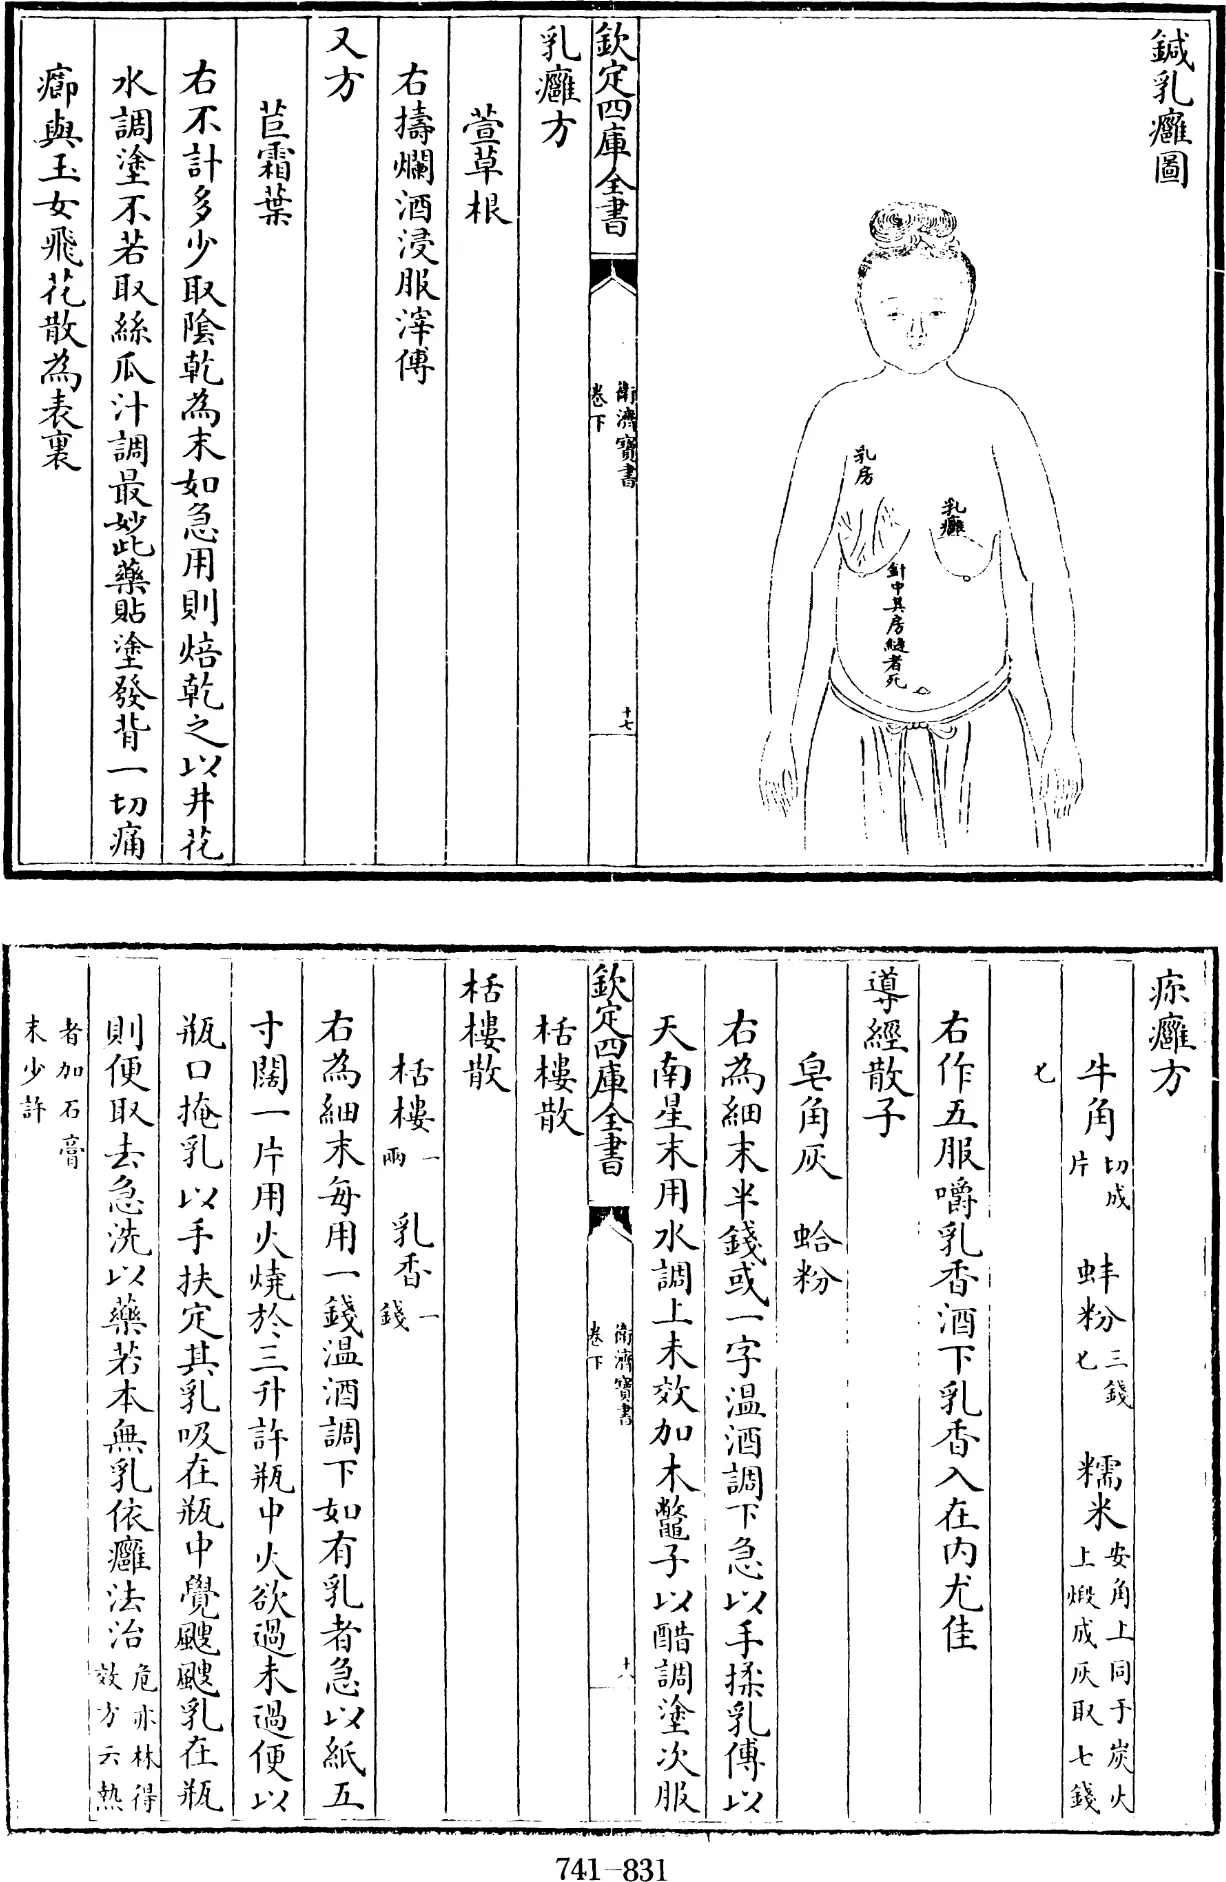 鍼乳癰圖
乳房
乳癰
針中其房縫者死
欽定四庫全書
衛濟寶書
卷下
十七
乳癰方
萱草根
右擣爛酒浸服滓傅
又方
苣霜葉
右不計多少取陰乾為末如急用則焙乾之以井花
水調塗不若取絲瓜汁調最妙此藥貼塗發背一切痛
癤與玉女飛花散為表裏
瘃癰方
牛角切成片 蚌粉三錢七 糯米安角上同于炭火上煅成灰取七錢
七
右作五服嚼乳香酒下乳香入在内尤佳
導經散子
皂角灰 蛤粉
右為細末半錢或一字溫酒調下急以手揉乳傅以
天南星末用水調上未效加木鱉子以醋調塗次服
栝樓散
欽定四庫全書
衛濟寶書
卷下
十八
栝樓散
栝樓一兩 乳香一錢
右為細末每用一錢溫酒調下如有乳者急以紙五
寸闊一片用火燒於三升許瓶中火欲過未過便以
瓶口掩乳以手扶定其乳吸在瓶中覺颼颼乳在瓶
則便取去急洗以藥若本無乳依癰法治危亦林得效方云熱
者加石膏末少許
741-831